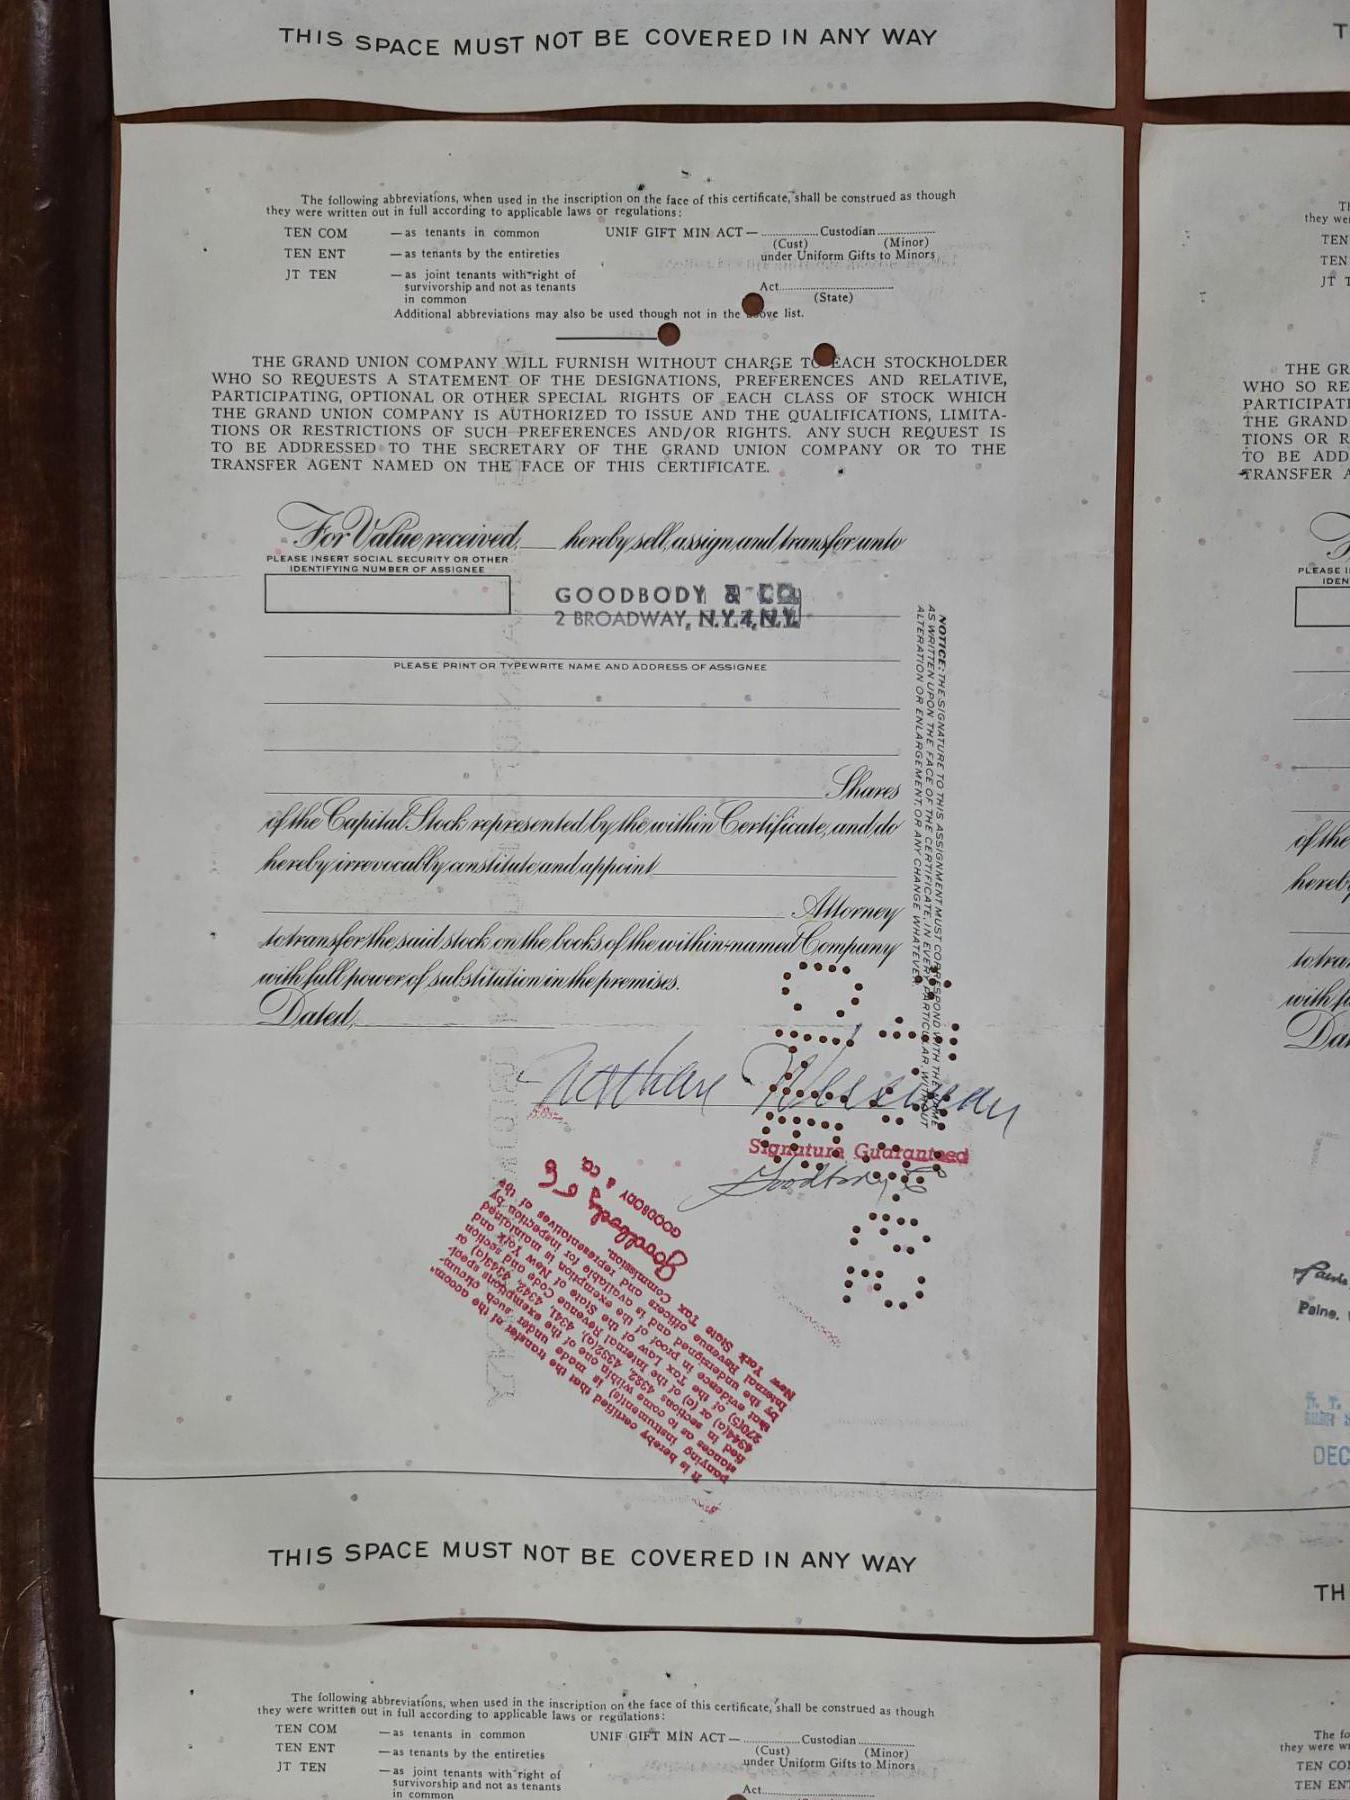 THIS SPACE MUST NOT BE COVERED IN ANY WAY
The following abbreviations, when used in the inscription on the face of this certificate, shall be construed as though
they were written out in full according to applicable laws or regulations:
TEN COM —as tenants in common UNIF GIFT MIN ACT— Custodian
(Cust) (Minor)
TEN ENT —as tenants by the entireties under Uniform Gifts to Minors
JT TEN —as joint tenants with right of
survivorship and not as tenants
in common
Act
(State)
Additional abbreviations may also be used though not in the above list.
THE GRAND UNION COMPANY WILL FURNISH WITHOUT CHARGE TO EACH STOCKHOLDER
WHO SO REQUESTS A STATEMENT OF THE DESIGNATIONS, PREFERENCES AND RELATIVE,
PARTICIPATING, OPTIONAL OR OTHER SPECIAL RIGHTS OF EACH CLASS OF STOCK WHICH
THE GRAND UNION COMPANY IS AUTHORIZED TO ISSUE AND THE QUALIFICATIONS, LIMITA-
TIONS OR RESTRICTIONS OF SUCH PREFERENCES AND/OR RIGHTS. ANY SUCH REQUEST IS
TO BE ADDRESSED TO THE SECRETARY OF THE GRAND UNION COMPANY OR TO THE
TRANSFER AGENT NAMED ON THE FACE OF THIS CERTIFICATE.
For Value received, hereby sell, assign and transfer unto
PLEASE INSERT SOCIAL SECURITY OR OTHER
IDENTIFYING NUMBER OF ASSIGNEE
GOODBODY & CO.
2 BROADWAY, N.Y. 4, N.Y.
PLEASE PRINT OR TYPEWRITE NAME AND ADDRESS OF ASSIGNEE
Shares
of the Capital Stock represented by the within Certificate, and do
hereby irrevocably constitute and appoint
Attorney
to transfer the said stock on the books of the within-named Company
with full power of substitution in the premises.
Dated,
NOTICE: THE SIGNATURE TO THIS ASSIGNMENT MUST CORRESPOND WITH THE NAME
AS WRITTEN UPON THE FACE OF THE CERTIFICATE, IN EVERY PARTICULAR, WITHOUT
ALTERATION OR ENLARGEMENT, OR ANY CHANGE WHATEVER.
Nathan
Signature Guaranteed
Goodbody & Co
It is hereby certified that the transfer of the accom-
panying instrument(s) is made under such circum-
stances as to come within one of the exemptions speci-
fied in sections 4332, 4332(a), 4341, 4342, 4343(a) or
4344(a) or (c) of the Internal Revenue Code and section
270(5) of the Tax Law of the State of New York and
that evidence in proof of the exemption is maintained
by the undersigned and is available for inspection by
Internal Revenue officers and representatives of the
New York State Tax Commission.
Goodbody & Co
GOODBODY & CO.
THIS SPACE MUST NOT BE COVERED IN ANY WAY
The following abbreviations, when used in the inscription on the face of this certificate, shall be construed as though
they were written out in full according to applicable laws or regulations:
TEN COM —as tenants in common UNIF GIFT MIN ACT— Custodian
(Cust) (Minor)
TEN ENT —as tenants by the entireties under Uniform Gifts to Minors
JT TEN —as joint tenants with right of
survivorship and not as tenants
in common
Act
THE GR
WHO SO RE
PARTICIPATI
THE GRAND
TIONS OR R
TO BE ADD
TRANSFER A
PLEASE I
IDEN
of the
hereby
with fu
Paine,
DEC
TH
The fo
they were w
TEN CO
TEN ENT